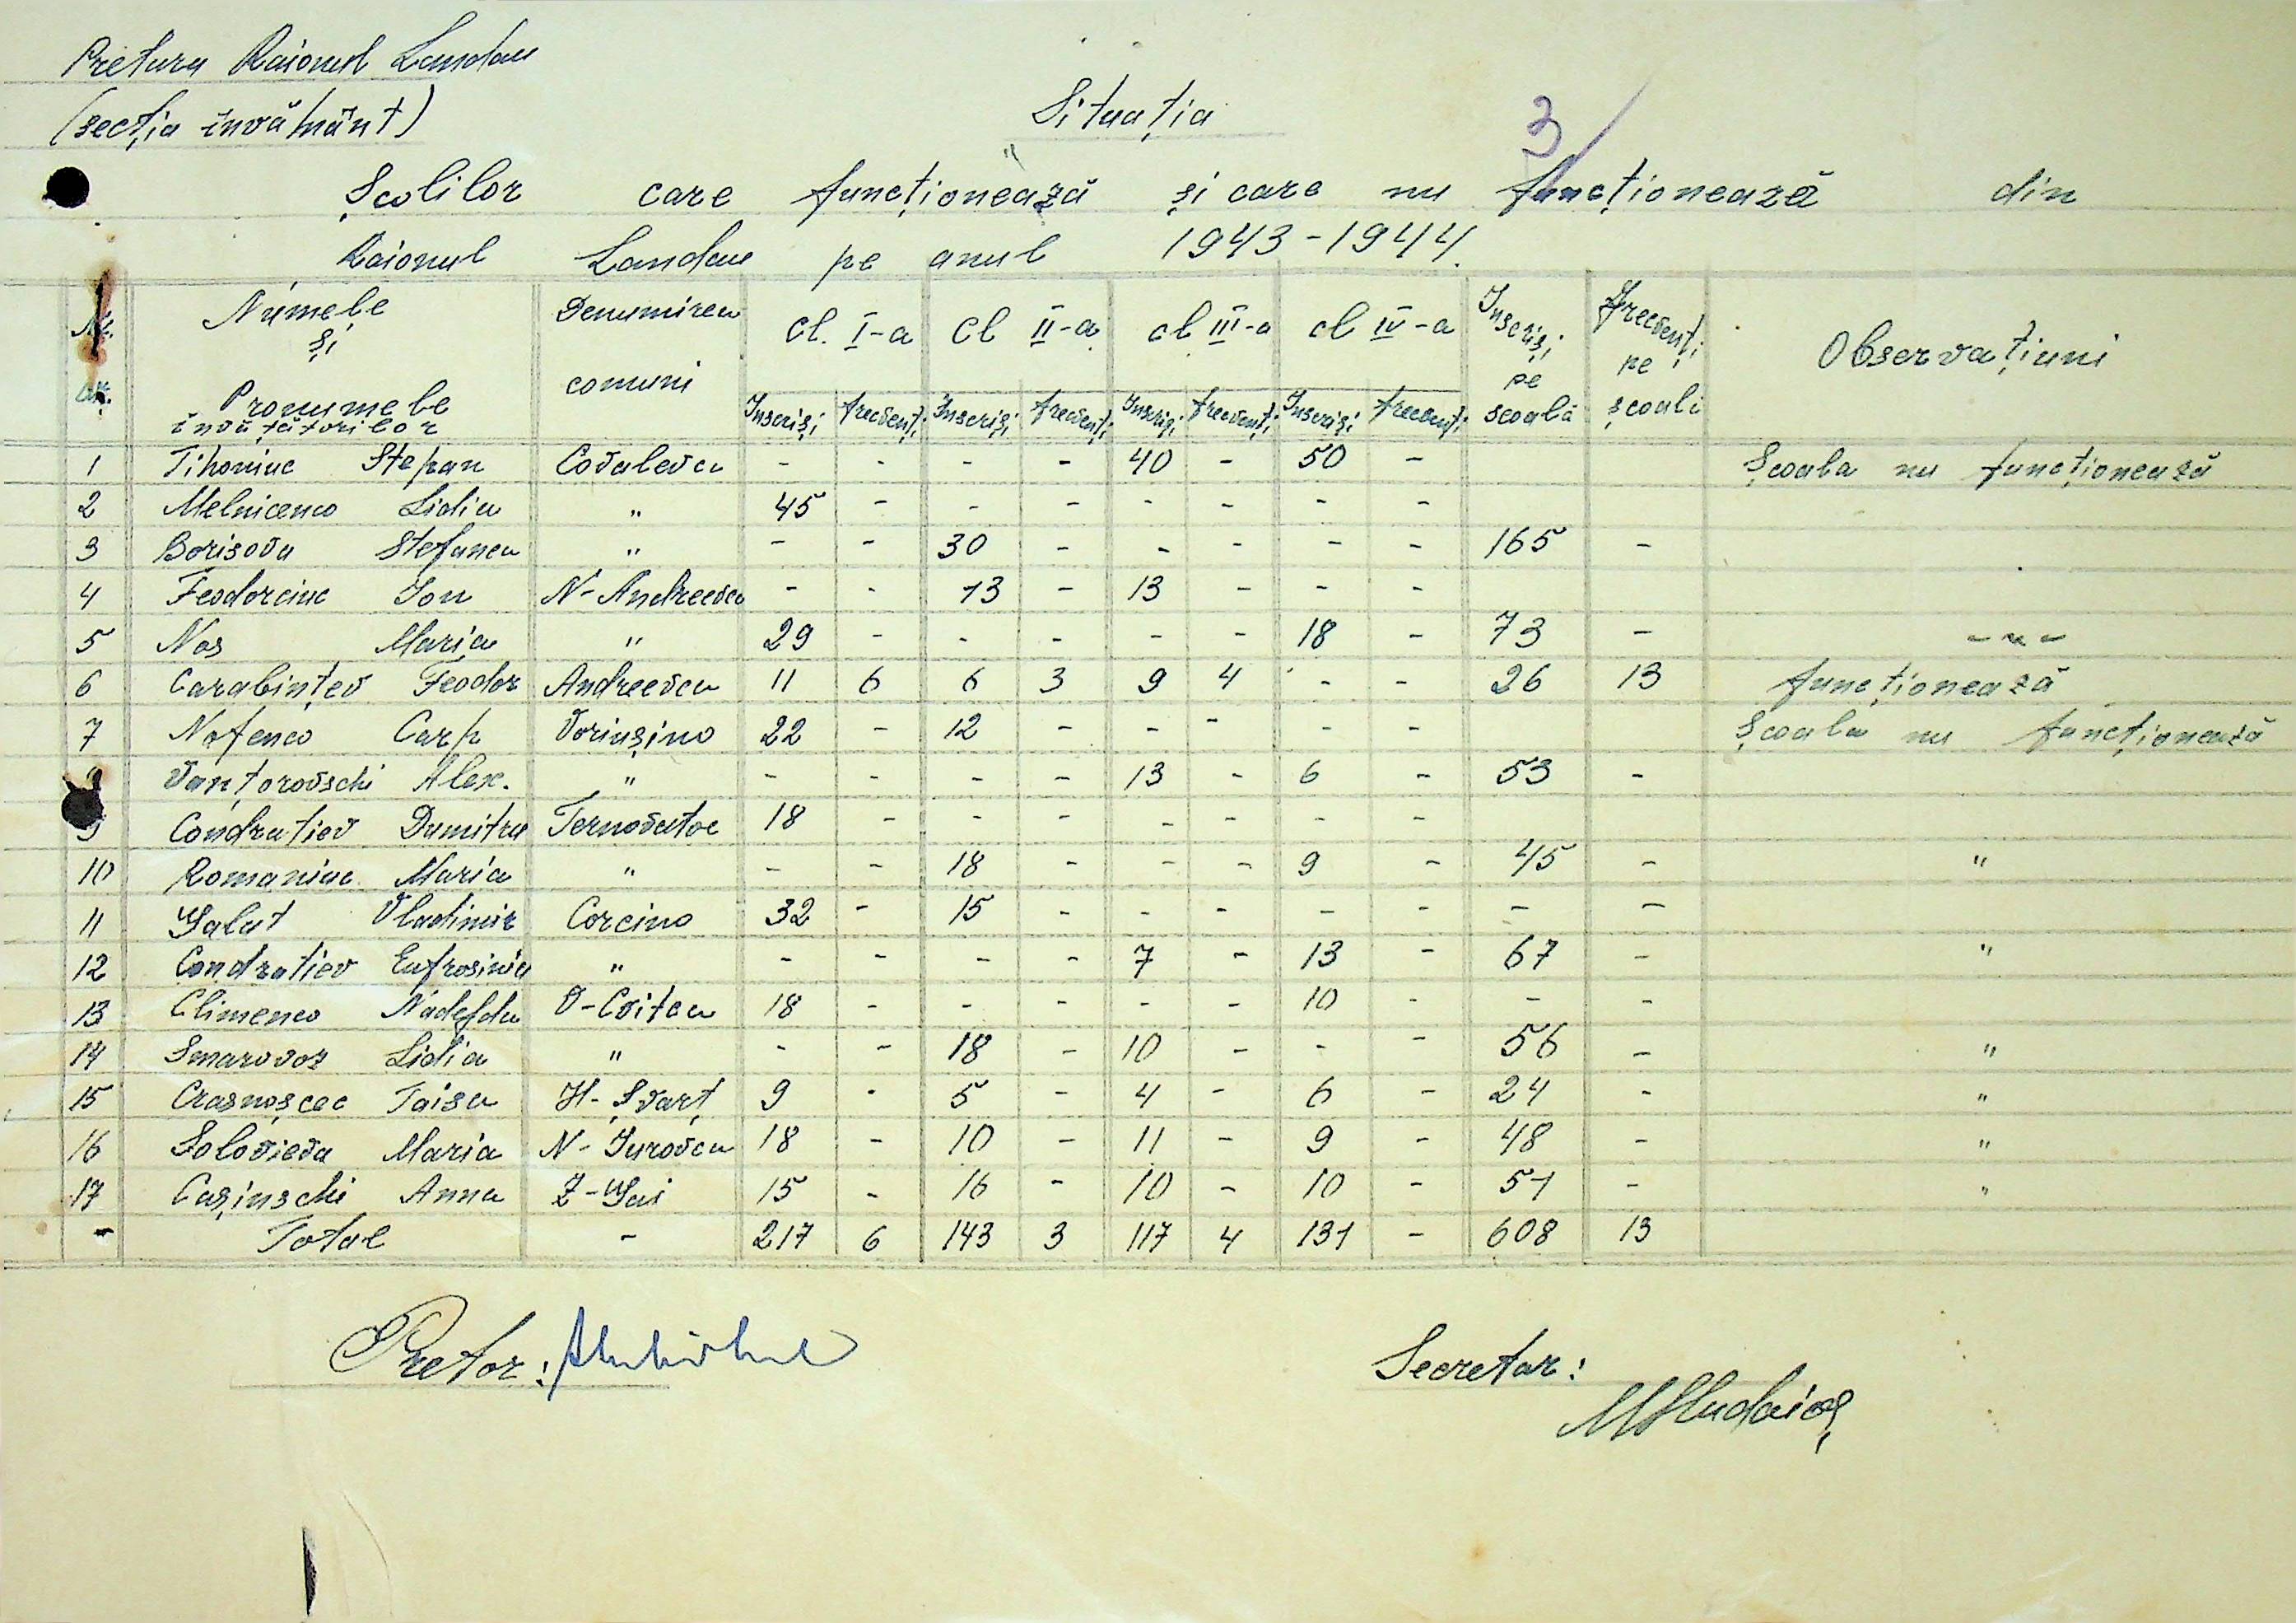 Pretura Raionul Landau
(secția învământ)
Situația
3
Școlilor care funcționează și care nu funcționează din
Raionul Landau pe anul 1943-1944.
Nr. crt. Numele și Pronumele învățătorilor Denumirea comuni Cl. I-a Cl II-a cl III-a cl IV-a Inscriși pe scoală frecvenți pe școală Observațiuni
Inscriși frecvenți Inscriși frecvenți Inscriși frecvenți Inscriși frecvenți
1 Tihoniuc Stepan Covalevca - - - - 40 - 50 - Școala nu funcționează
2 Melnicenco Lidia " 45 - - - - - - -
3 Borisova Stefanea " - - 30 - - - - - 165 -
4 Feodorciuc Ion N-Andreevca - - 13 - 13 - - -
5 Nos Maria " 29 - - - - - 18 - 73 - -"-
6 Carabințev Feodor Andreevca 11 6 6 3 9 4 - - 26 13 funcționează
7 Nofenco Carp Voriușino 22 - 12 - - - - - Școala nu funcționează
Vanțorovschi Alex. " - - - - 13 - 6 - 53 -
9 Condratiev Dumitru Ternovatoe 18 - - - - - - -
10 Romaniuc Maria " - - 18 - - - 9 - 45 - "
11 Galut Vladimir Corcino 32 - 15 - - - - - - -
12 Condratiev Eufrosinia " - - - - 7 - 13 - 67 - "
13 Climenco Nadejda V-Cvitca 18 - - - - - 10 - - -
14 Smarovoz Lidia " - - 18 - 10 - - - 56 - "
15 Crasnoșcec Taisa H-Șvarț 9 - 5 - 4 - 6 - 24 - "
16 Solovieva Maria N-Iurovca 18 - 10 - 11 - 9 - 48 - "
17 Cașinschi Anna Z-Gai 15 - 16 - 10 - 10 - 51 - "
- Total - 217 6 143 3 117 4 131 - 608 13
Pretor:
Secretar: